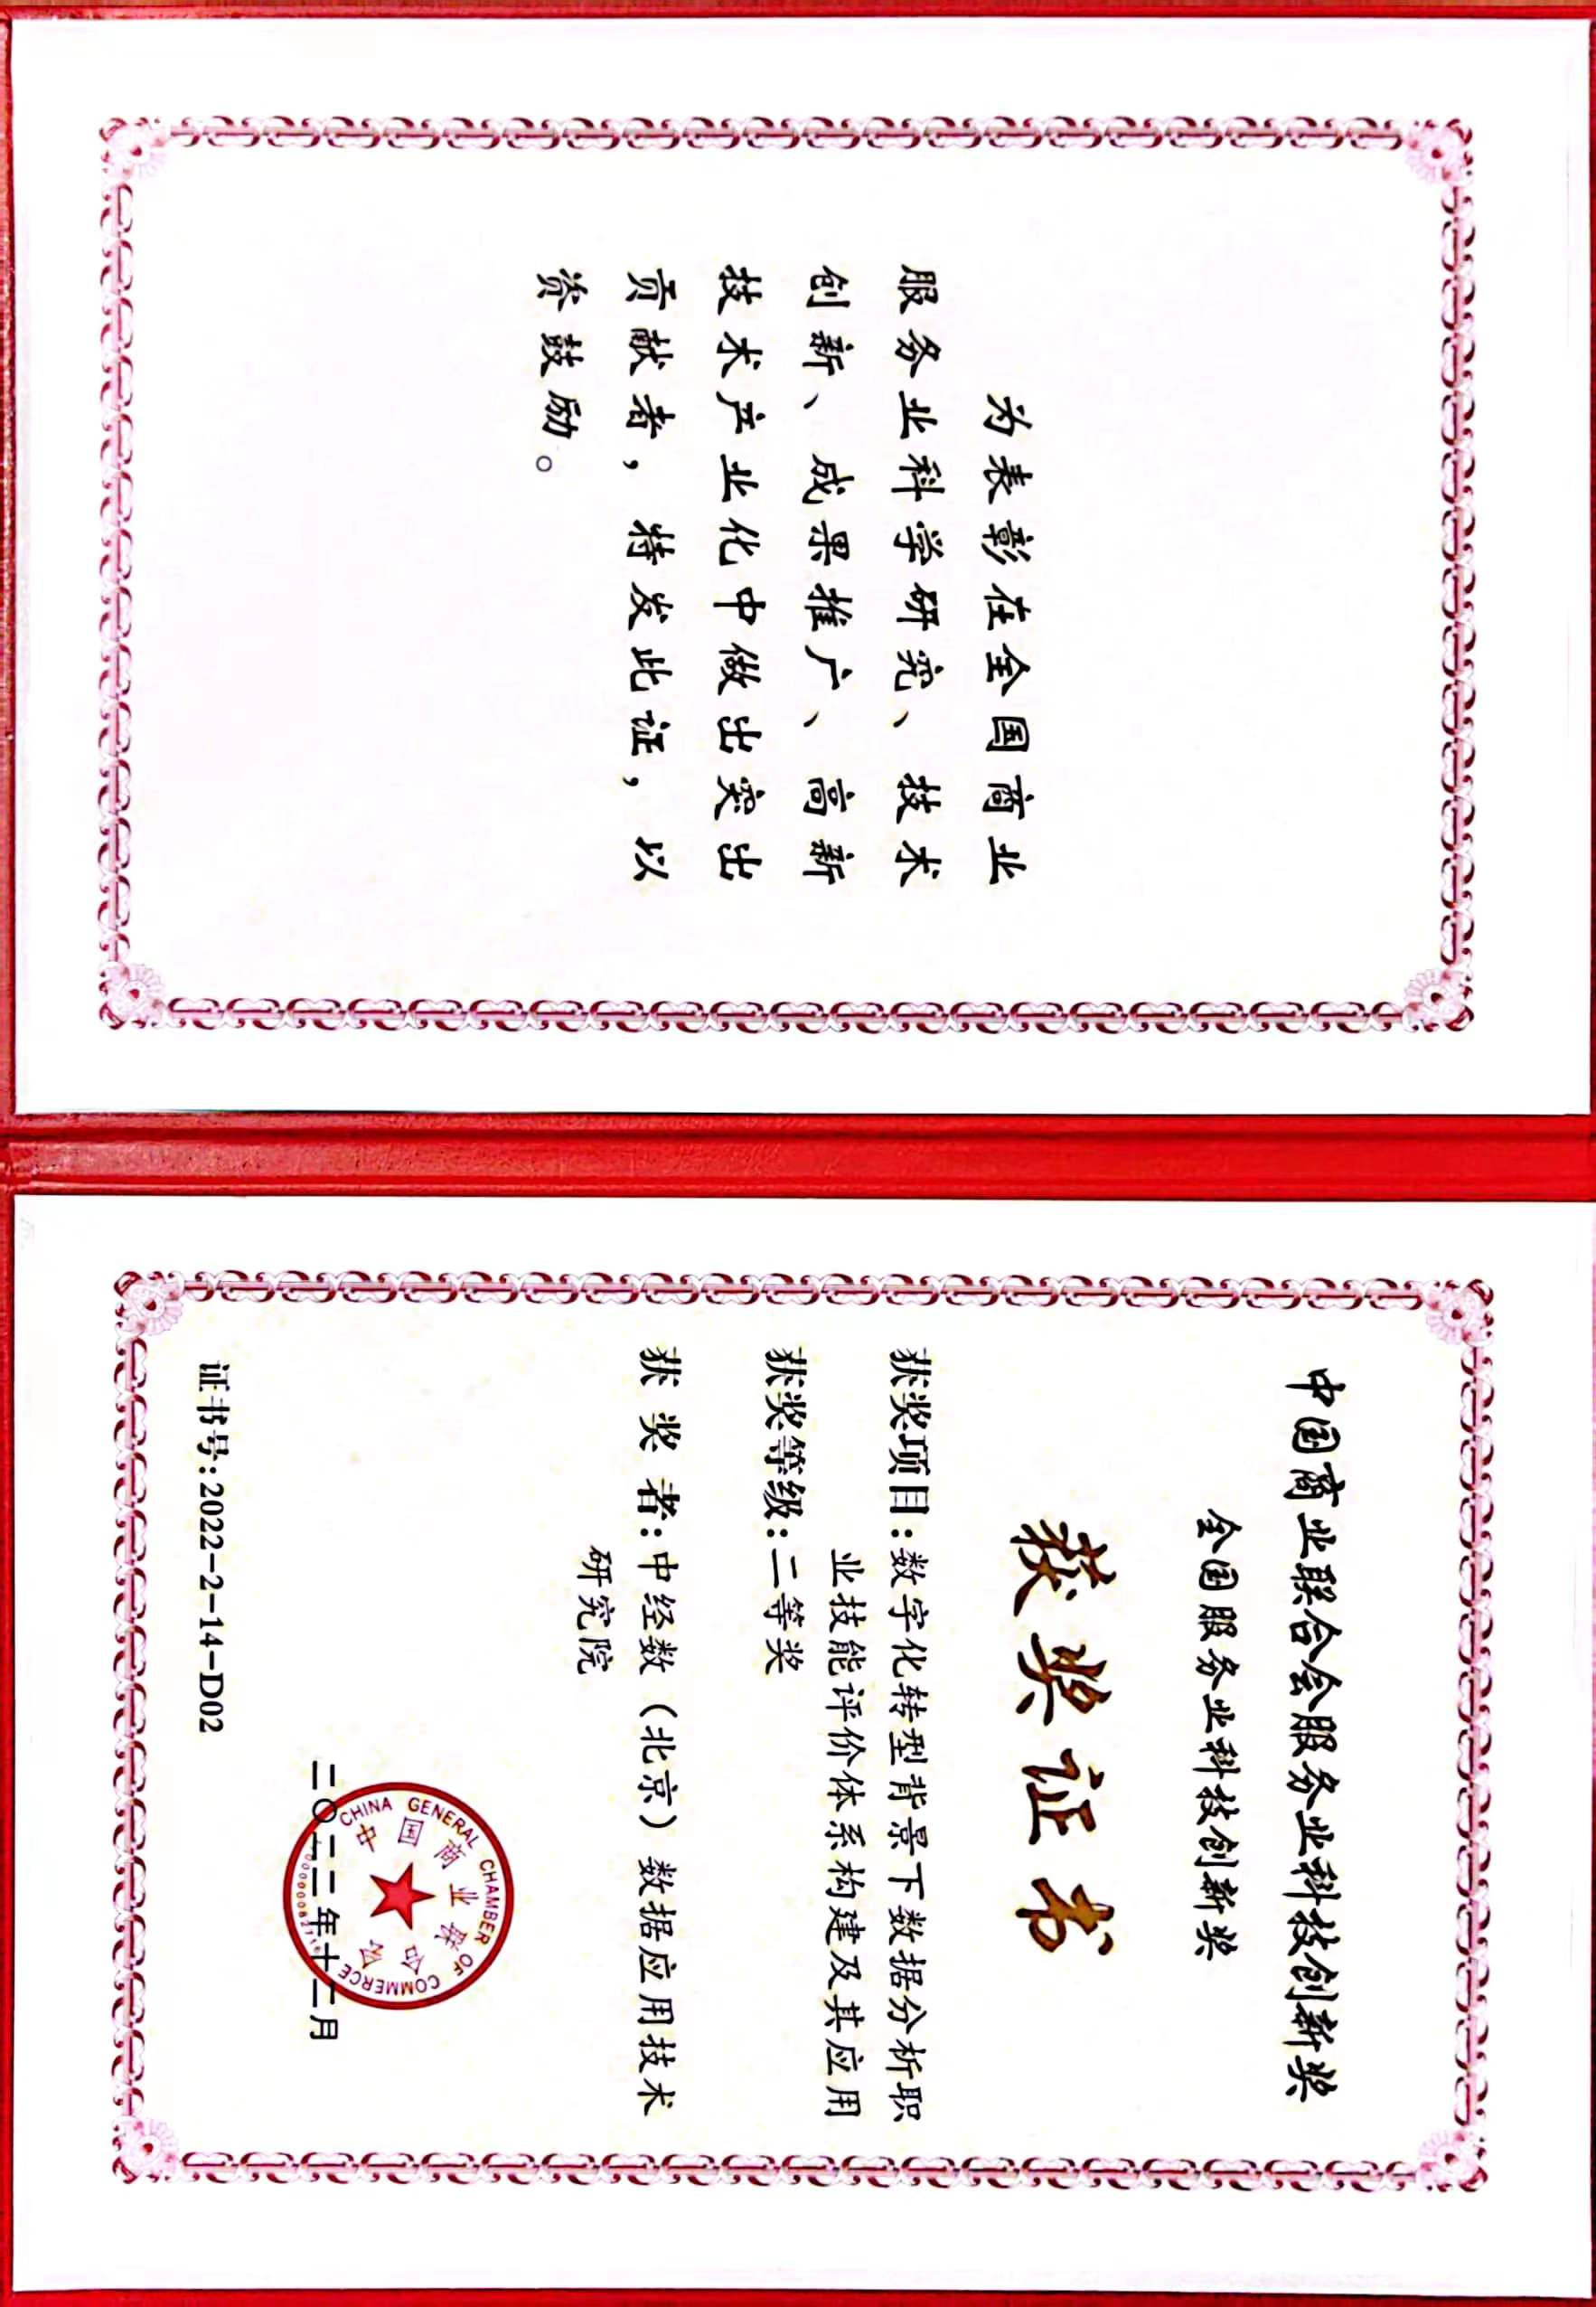 为表彰在全国商业
服务业科学研究、技术
创新、成果推广、高新
技术产业化中做出突出
贡献者，特发此证，以
资鼓励。
中国商业联合会服务业科技创新奖
全国服务业科技创新奖
获奖证书
获奖项目：数字化转型背景下数据分析职
业技能评价体系构建及其应用
获奖等级：二等奖
获 奖 者：中经数（北京）数据应用技术
研究院
CHINA GENERAL CHAMBER OF COMMERCE
中国商业联合会
二〇二二年十二月
证书号:2022-2-14-D02